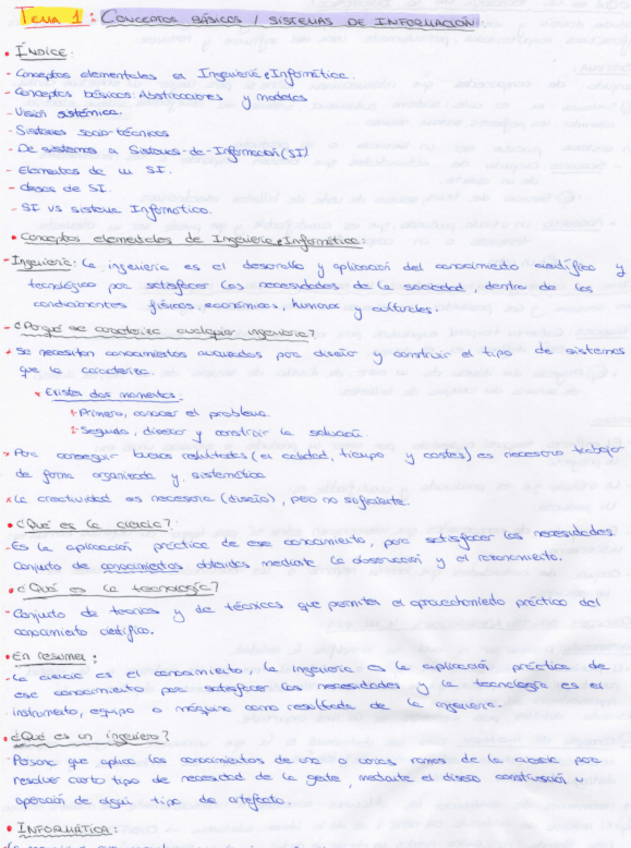 Tema 1: Conceptos básicos / sistemas de información
• Índice:
- Conceptos elementales en Ingeniería e Informática.
- Conceptos básicos: Abstracciones y modelos
- Visión sistémica.
- Sistemas socio-técnicos
- De sistemas a Sistemas-de-Información (SI)
- Elementos de un SI.
- clases de SI.
- SI vs sistema Informático.
• Conceptos elementales de Ingeniería e Informática:
- Ingeniería: la ingeniería es el desarrollo y aplicación del conocimiento científico y
tecnológico para satisfacer las necesidades de la sociedad, dentro de los
condicionantes físicos, económicos, humanos y culturales.
- ¿Porqué se caracteriza cualquier ingeniería?
* Se necesitan conocimientos avanzados para diseñar y construir el tipo de sistemas
que la caracteriza.
* Existen dos momentos:
1- Primero, conocer el problema.
2- Segundo, diseñar y construir la solución.
* Para conseguir buenos resultados (en calidad, tiempo y costes) es necesario trabajar
de forma organizada y sistemática
* La creatividad es necesaria (diseño), pero no suficiente.
• ¿Qué es la ciencia?
- Es la aplicación práctica de ese conocimiento, para satisfacer las necesidades.
Conjunto de conocimientos obtenidos mediante la observación y el razonamiento.
• ¿Qué es la tecnología?
- Conjunto de teorías y de técnicas que permiten el aprovechamiento práctico del
conocimiento científico.
• En resumen:
- La ciencia es el conocimiento, la ingeniería es la aplicación práctica de
ese conocimiento para satisfacer las necesidades y la tecnología es el
instrumento, equipo o máquina como resultado de la ingeniería.
• ¿Qué es un ingeniero?
- Persona que aplica los conocimientos de una o varias ramas de la ciencia para
resolver cierto tipo de necesidad de la gente, mediante el diseño construcción u
operación de algún tipo de artefacto.
• Informática: